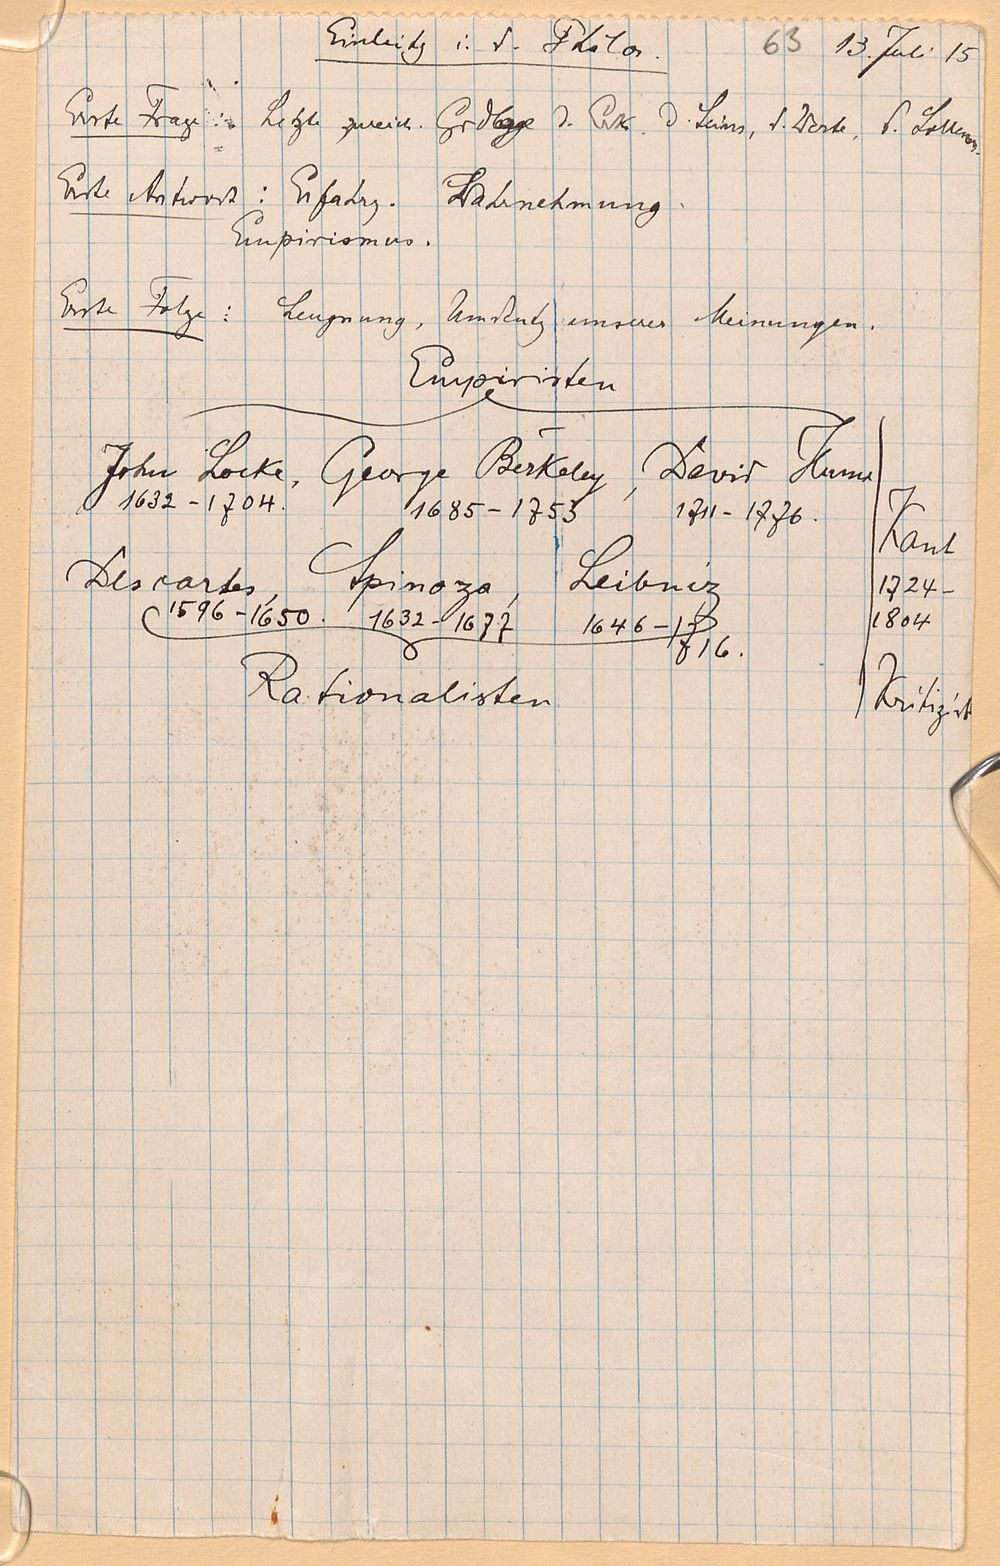 Einleitg i. d. Philos. 63 13. Juli 15
Erste Frage: Letzte zureich. Grdlage d. Erk. d. Seins, d. Werte, d. Sollens.
Erste Antwort: Erfahrg. Wahrnehmung.
Empirismus.
Erste Folge: Leugnung, Umdeutg unserer Meinungen.
Empiristen
John Locke, George Berkeley, David Hume
1632-1704. 1685-1753 1711-1776.
Kant
Descartes, Spinoza, Leibniz
1724-
1596-1650. 1632-1677 1646-17
1804
716.
Rationalisten